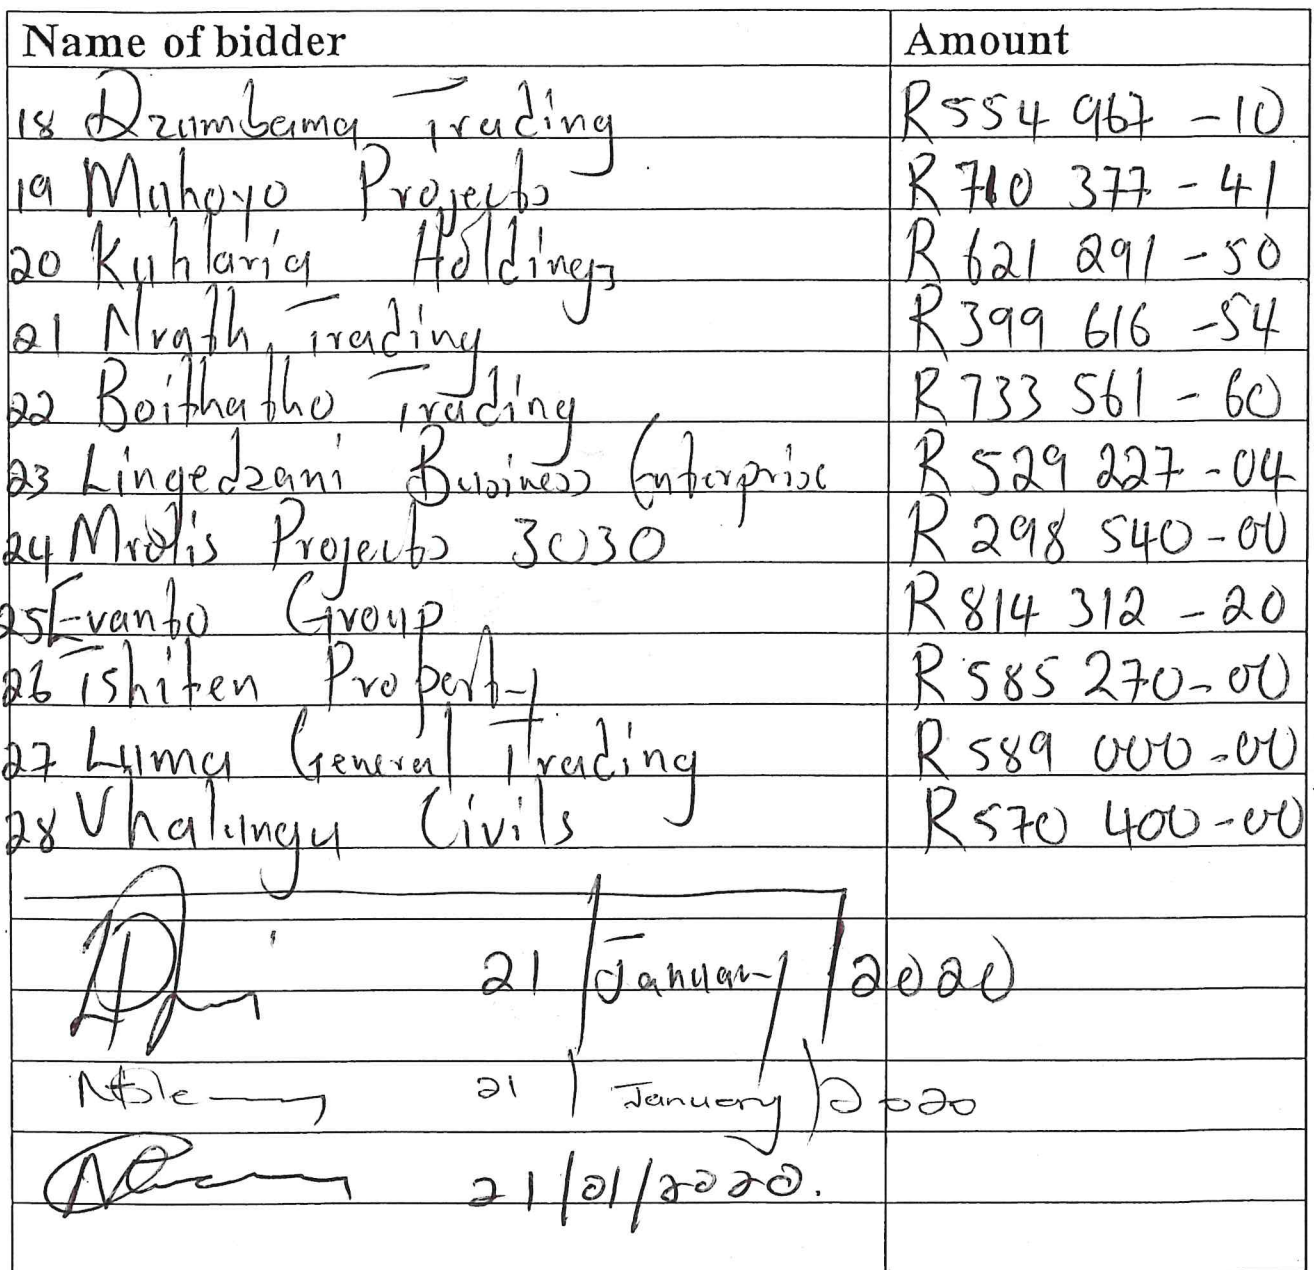 Name of bidder Amount
18 Dzumbama Trading R554 967 -10
19 Mahoyo Projects R710 377 - 41
20 Kuhlaria Holdings R 621 291 - 50
21 Nrath Trading R399 616 -54
22 Boithatho Trading R 733 561 - 60
23 Lingedzani Business Enterprise R 529 227 -04
24 Mrolis Projects 3030 R 298 540-00
25 Evanto Group R 814 312 - 20
26 Tshiten Property R 585 270-00
27 Luma General Trading R 589 000-00
28 Vhalungu Civils R570 400-00
21 / January / 2020
21 / January / 2020
21/01/2020.